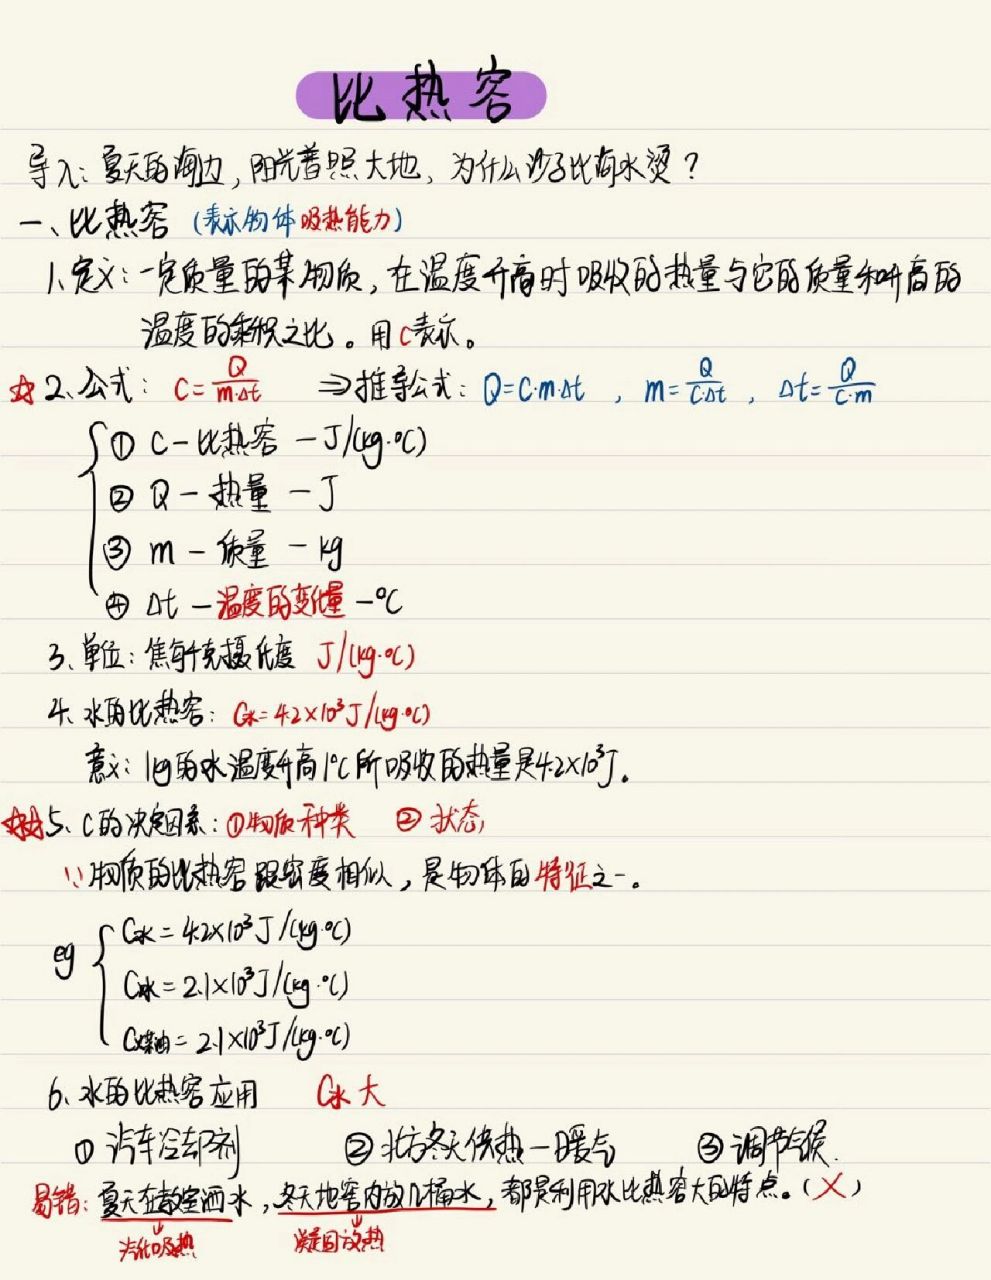 比热容
导入：夏天的海边，阳光普照大地，为什么沙子比海水烫？
一、比热容 (表示物体吸热能力)
1.定义：一定质量的某物质，在温度升高时吸收的热量与它的质量和升高的
温度的乘积之比。用c表示。
☆2、公式：C=Q/m·Δt ⇒推导公式：Q=C·m·Δt ，m=Q/C·Δt ，Δt=Q/C·m
① C-比热容 -J/(kg·℃)
② Q-热量-J
③ m-质量-kg
④ Δt-温度的变化量-℃
3、单位：焦每千克摄氏度 J/(kg·℃)
4、水的比热容：C水=4.2×10³J/(kg·℃)
意义：1kg的水温度升高1℃所吸收的热量是4.2×10³J。
☆☆5、C的决定因素：①物质种类 ②状态
∵物质的比热容跟密度相似，是物体的特征之一。
eg
C水=4.2×10³J/(kg·℃)
C冰=2.1×10³J/(kg·℃)
C煤油=2.1×10³J/(kg·℃)
6、水的比热容应用 C水大
① 汽车冷却剂 ②北方冬天供热-暖气 ③调节气候.
易错：夏天在教室洒水，冬天地窖内放几桶水，都是利用水比热容大的特点。(×)
汽化吸热 凝固放热